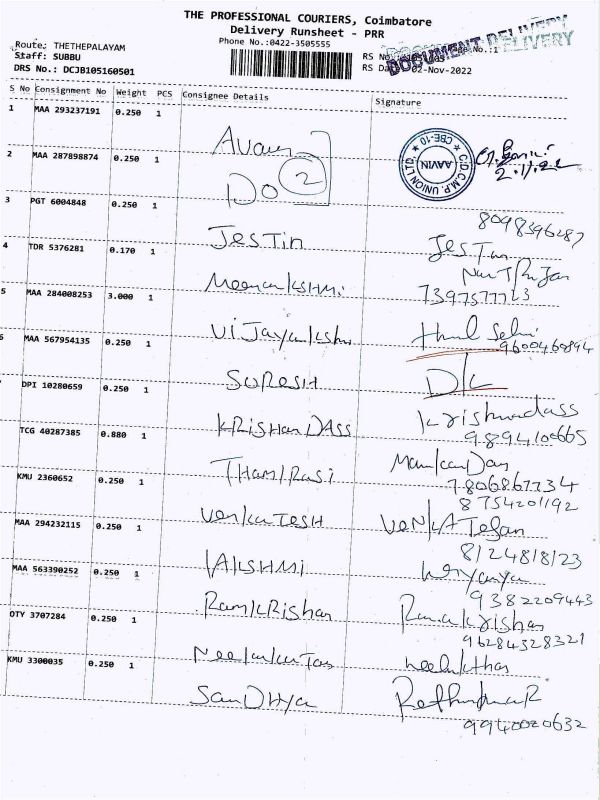 THE PROFESSIONAL COURIERS, Coimbatore
Delivery Runsheet - PRR
Phone No.:0422-3505555
DOCUMENT DELIVERY
DOCUMENT DELIVERY
Route: THETHEPALAYAM
Staff: SUBBU
DRS No.: DCJB105160501
RS No
No.:1
RS Da 02-Nov-2022
S No Consignment No Weight PCS Consignee Details Signature
1 MAA 293237191 0.250 1
C.D.C.M.P. UNION LTD. AAVIN CBE-10
2.11.22
2 MAA 287898874 0.250 1 DO 2
3 PGT 6004848 0.250 1 Jestin Jestin 8098396287
4 TDR 5376281 0.170 1 Meenakshmi 7397577723
5 MAA 284008253 3.000 1 Vijayalkshmi 9600460894
6 MAA 567954135 0.250 1 Suresh D/L
DPI 10280659 0.250 1 KRishan DASS Krishnadass 9894100665
TCG 40287385 0.880 1 ThamIRasi 7806867734
8754201192
KMU 2360652 0.250 1 Venkatesh
MAA 294232115 0.250 1 LAkshmi 8124818123
MAA 563390252 0.250 1 RamkRishan Ramakrishan 9382209443
96284328321
OTY 3707284 0.250 1
KMU 3300035 0.250 1 SanDhya 9940020632